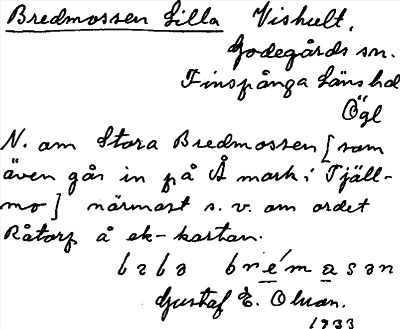 Bredmossen Lilla Vishult,
Godegårds sn.
Finspånga länshd
Ögl
N. om Stora Bredmossen [som
även går in på Å mark i Tjäll-
mo] närmast s. v. om ordet
Råtorp å ek-kartan.
Gustaf E. Olson.
1933